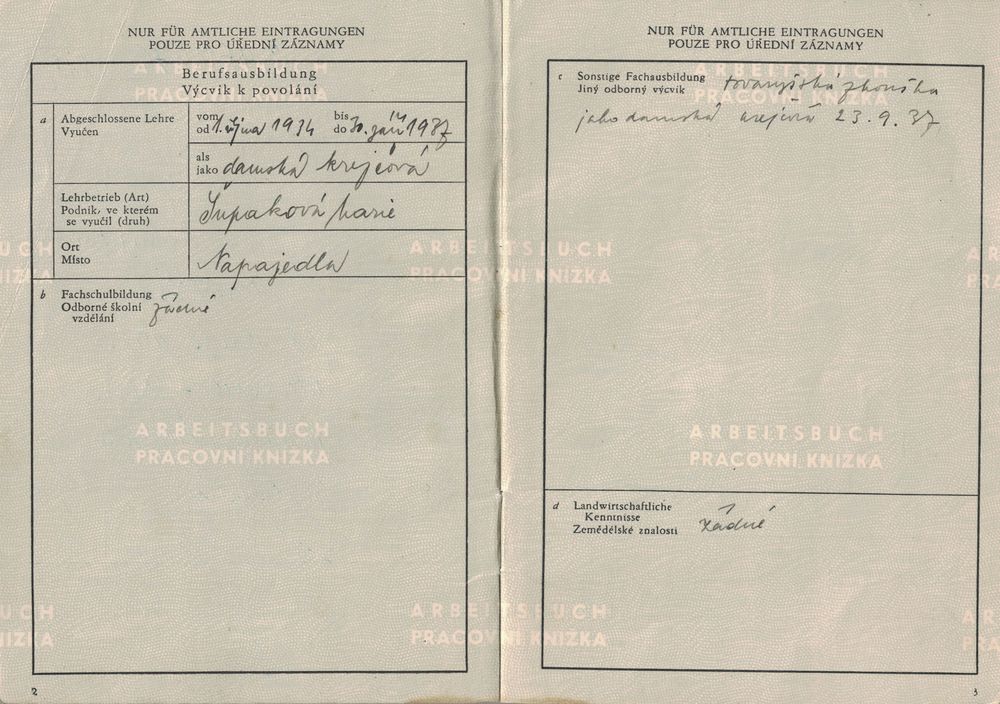 NUR FÜR AMTLICHE EINTRAGUNGEN
POUZE PRO ÚŘEDNÍ ZÁZNAMY
Berufsausbildung
Výcvik k povolání
a Abgeschlossene Lehre
Vyučen
vom
od 1. října 1934
bis
do 30. září 1937
als
jako damská krejčová
Lehrbetrieb (Art)
Podnik, ve kterém
se vyučil (druh)
Šupaková Marie
Ort
Místo
Napajedla
b Fachschulbildung
Odborné školní
vzdělání
žádné
ARBEITSBUCH
PRACOVNI KNIZKA
2
NUR FÜR AMTLICHE EINTRAGUNGEN
POUZE PRO ÚŘEDNÍ ZÁZNAMY
c Sonstige Fachausbildung
Jiný odborný výcvik
tovaryšská zkouška
jako damská krejčová 23. 9. 37
ARBEITSBUCH
PRACOVNI KNIZKA
d Landwirtschaftliche
Kenntnisse
Zemědělské znalosti
žádné
ARBEITSBUCH
PRACOVNI KNIZKA
3